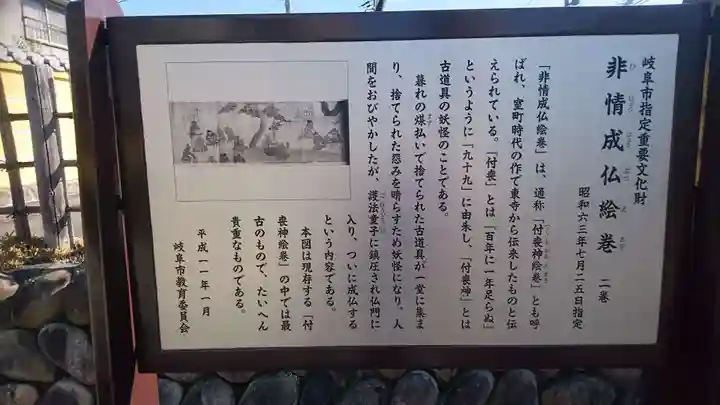 岐阜市指定重要文化財
非情成仏絵巻 二巻
昭和六三年七月二五日指定
「非情成仏絵巻」は、通称「付喪神絵巻」とも呼
ばれ、室町時代の作で東寺から伝来したものと伝
えられている。「付喪」とは「百年に一年足らぬ」
というように「九十九」に由来し、「付喪神」とは
古道具の妖怪のことである。
暮れの煤払いで捨てられた古道具が一堂に集ま
り、捨てられた怨みを晴らすため妖怪になり、人
間をおびやかしたが、護法童子に鎮圧され仏門に
入り、ついに成仏する
という内容である。
本図は現存する「付
喪神絵巻」の中では最
古のもので、たいへん
貴重なものである。
平成一一年一月
岐阜市教育委員会